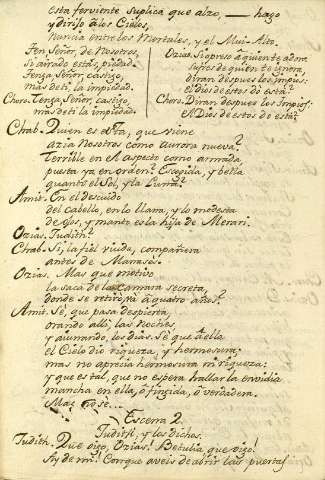 esta ferviente suplica que alzo, — hago
y dirijo à los Cielos,
Nuncia entre los Mortales, y el Mui-Alto.
Ten Señor, de Nosotros,
Si airado estás, piedad.
Tenga, Señor, castigo,
mas de ti, la impiedad.
Choro. Tenga, Señor, castigo,
mas de ti la impiedad.
Ozias. Si opreso à quien te adora
sufres de quien te ignora,
diran despues los impios:
el Dios de estos dó está?
Choro. Diran despues los Impios:
el Dios de estos dó está?
Chab. Quien es esta, que viene
azia Nosotros como aurora nueva?
Terrible en el Aspecto como armada
puesta ya en orden? Escogida, y bella
quanto el Sol, y la Luna?
Amit. En el descuido
del cabello, en lo llama, y lo modesta
de ojos, y manto es la hija de Merari.
Ozias. Judith?
Chab. Si, la fiel viuda, compañera
antes de Manasés.
Ozias. Mas que motivo
la saca de la camara secreta,
donde se retiró, va à quatro años?
Amit. Sé, que pasa despierta,
orando alli, las Noches,
y aiunando, los dias. Sé que à ella
el Cielo dió riqueza, y hermosura;
mas no aprecia hermosura ni riqueza:
y que es tal, que no espera hallar la envidia
mancha en ella, ó fingida, ó verdadera.
Mas no se...
Escena 2.
Judith, y los dichos.
Judith. Que oigo, Ozias! Betulia, que oigo!
Ay de mi! Conque aveis de abrir las puertas